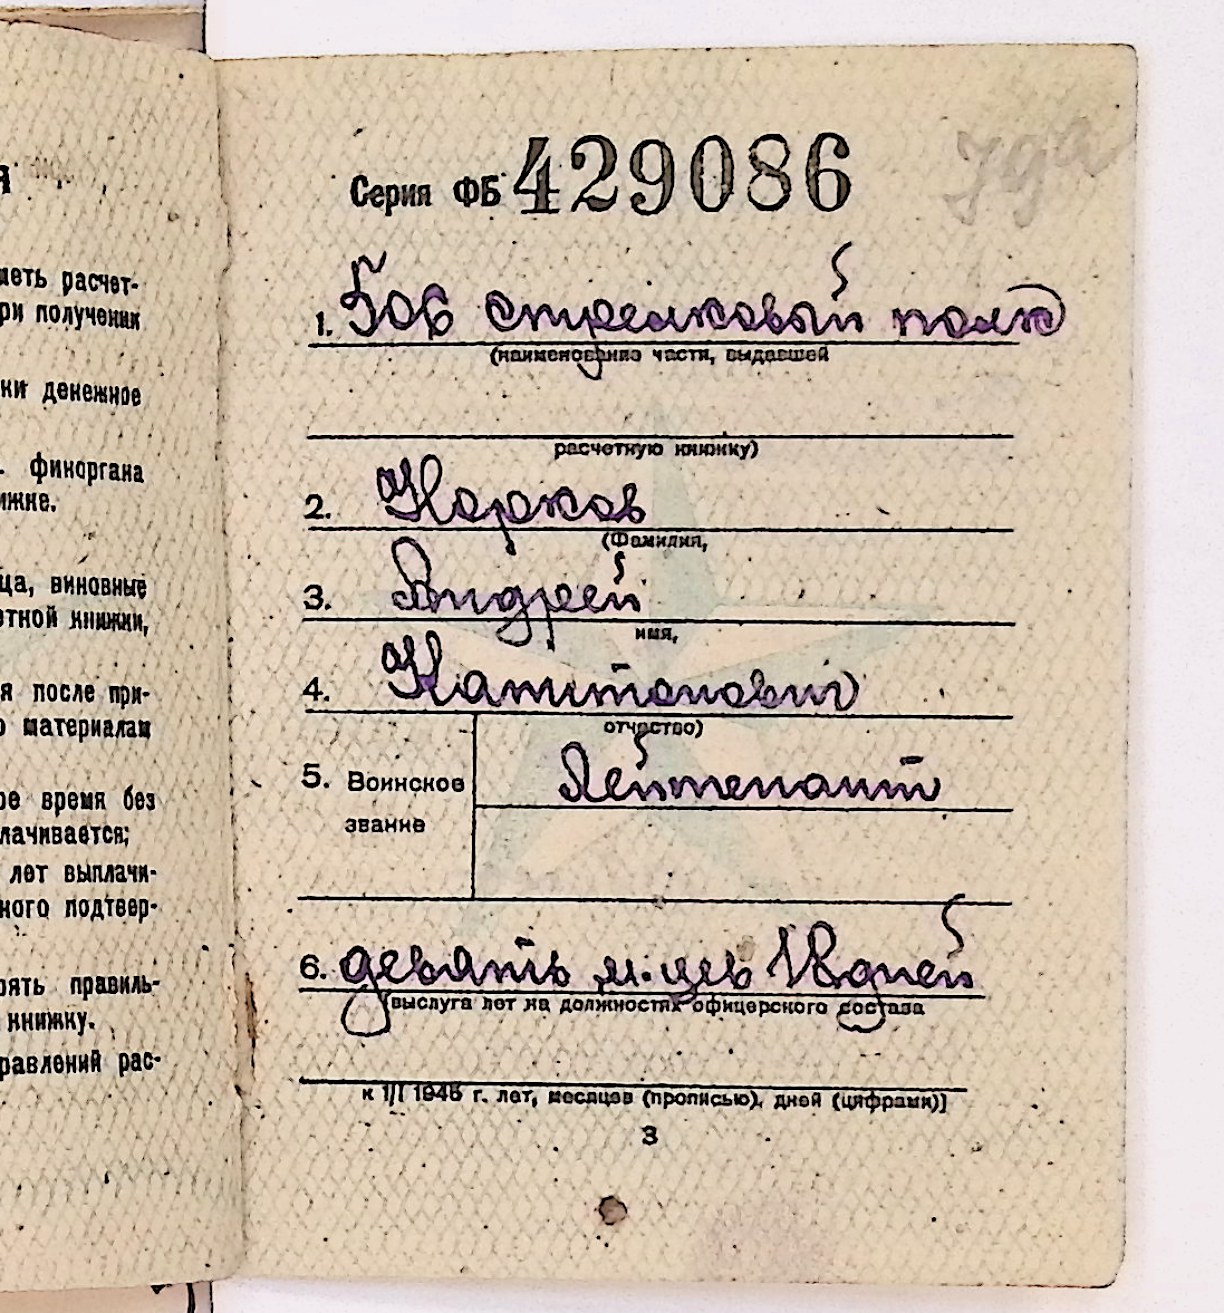 я
меть расчет-
ри получении
ки денежное
финоргана
ижке.
ца, виновные
етной книжки,
я после при-
о материалам
ое время без
лачивается;
лет выплачи-
ного подтвер-
рять правиль-
книжку.
равлений рас-
Серия ФБ 429086
1. 506 стрелковый полк
(наименование части, выдавшей
расчетную книжку)
2. Карков
(Фамилия,
3. Андрей
имя,
4. Капитонович
отчество)
5. Воинское звание Лейтенант
6. девять м-цев 18 дней
(выслуга лет на должностях офицерского состава
к 1/I 1945 г. лет, месяцев (прописью), дней (цифрами)]
3